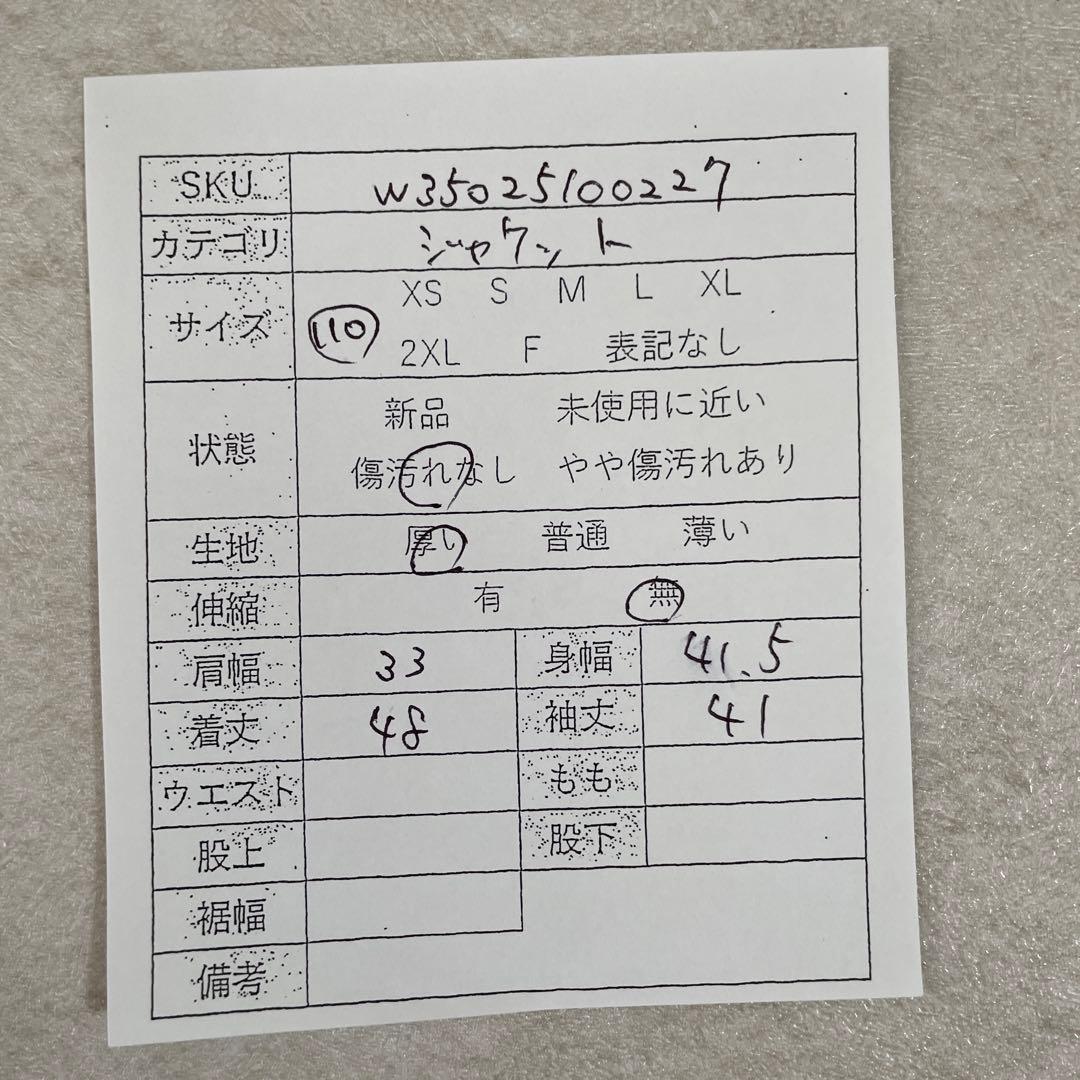 SKU W35025100227
カテゴリ ジャケット
サイズ 110 XS S M L XL
2XL F 表記なし
状態 新品 未使用に近い
傷汚れなし やや傷汚れあり
生地 厚い 普通 薄い
伸縮 有 無
肩幅 33 身幅 41.5
着丈 48 袖丈 41
ウエスト もも
股上 股下
裾幅
備考